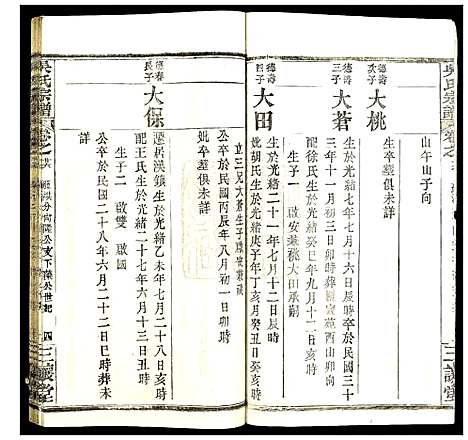 山午山子向
德壽次子 大桃 生於光緒七年七月十六日辰時卒於民國三十
三年十一月初三日卯時葬 西山卯向
德壽三子 大蒼 生於光緒十一年十一月十二日辰時
配徐氏生於光緒癸巳年九月十二日亥時
生子一 啟安兼祧大田承嗣
德壽四子 大田 生於光緒二十一年七月十二日辰時
妣胡氏生於光緒庚子年丁亥月癸丑日癸丑時
公卒於民國丙辰年八月初一日卯時
妣卒墓俱未詳
立三兄大蒼生子啟安兼祧
德春長子 大保 遷居漢鎮生於光緒乙未年七月十一日午時
配王氏生於光緒二十七年六月十三日丑時
生子二 啟雙 啟國
公卒於民國二十八年六月二十二日巳時葬未
詳
吳氏宗譜
卷之
四
三讓堂